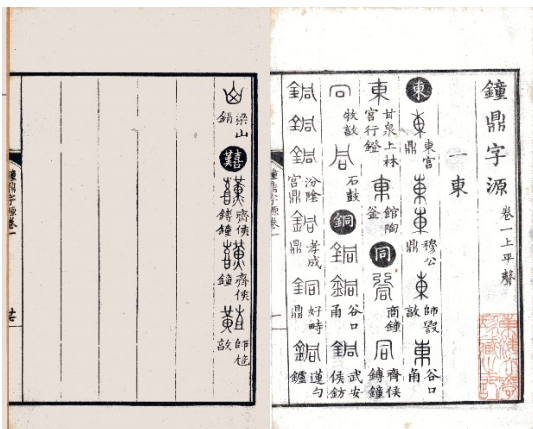 鐘鼎字源 卷一上平聲
一東
東 東 東宮鼎 東東 穆公鼎 東 師毀敦 東 谷口甬
東 甘泉上林宮行鐙 東 館陶釜 同 同 商鐘 同 齊侯鎛鐘
同 牧敦 同 石鼓 銅 銅銅 谷口甬 銅 武安侯鈁
銅銅銅 汾陰宮鼎 銅 孝成鼎 銅 好畤鼎 銅 蓮勺鑪
鐘鼎字源卷一
山 梁山鋗 囏 囏 齊侯鎛鐘 囏 齊侯鐘 師 敦
鐘鼎字源卷一